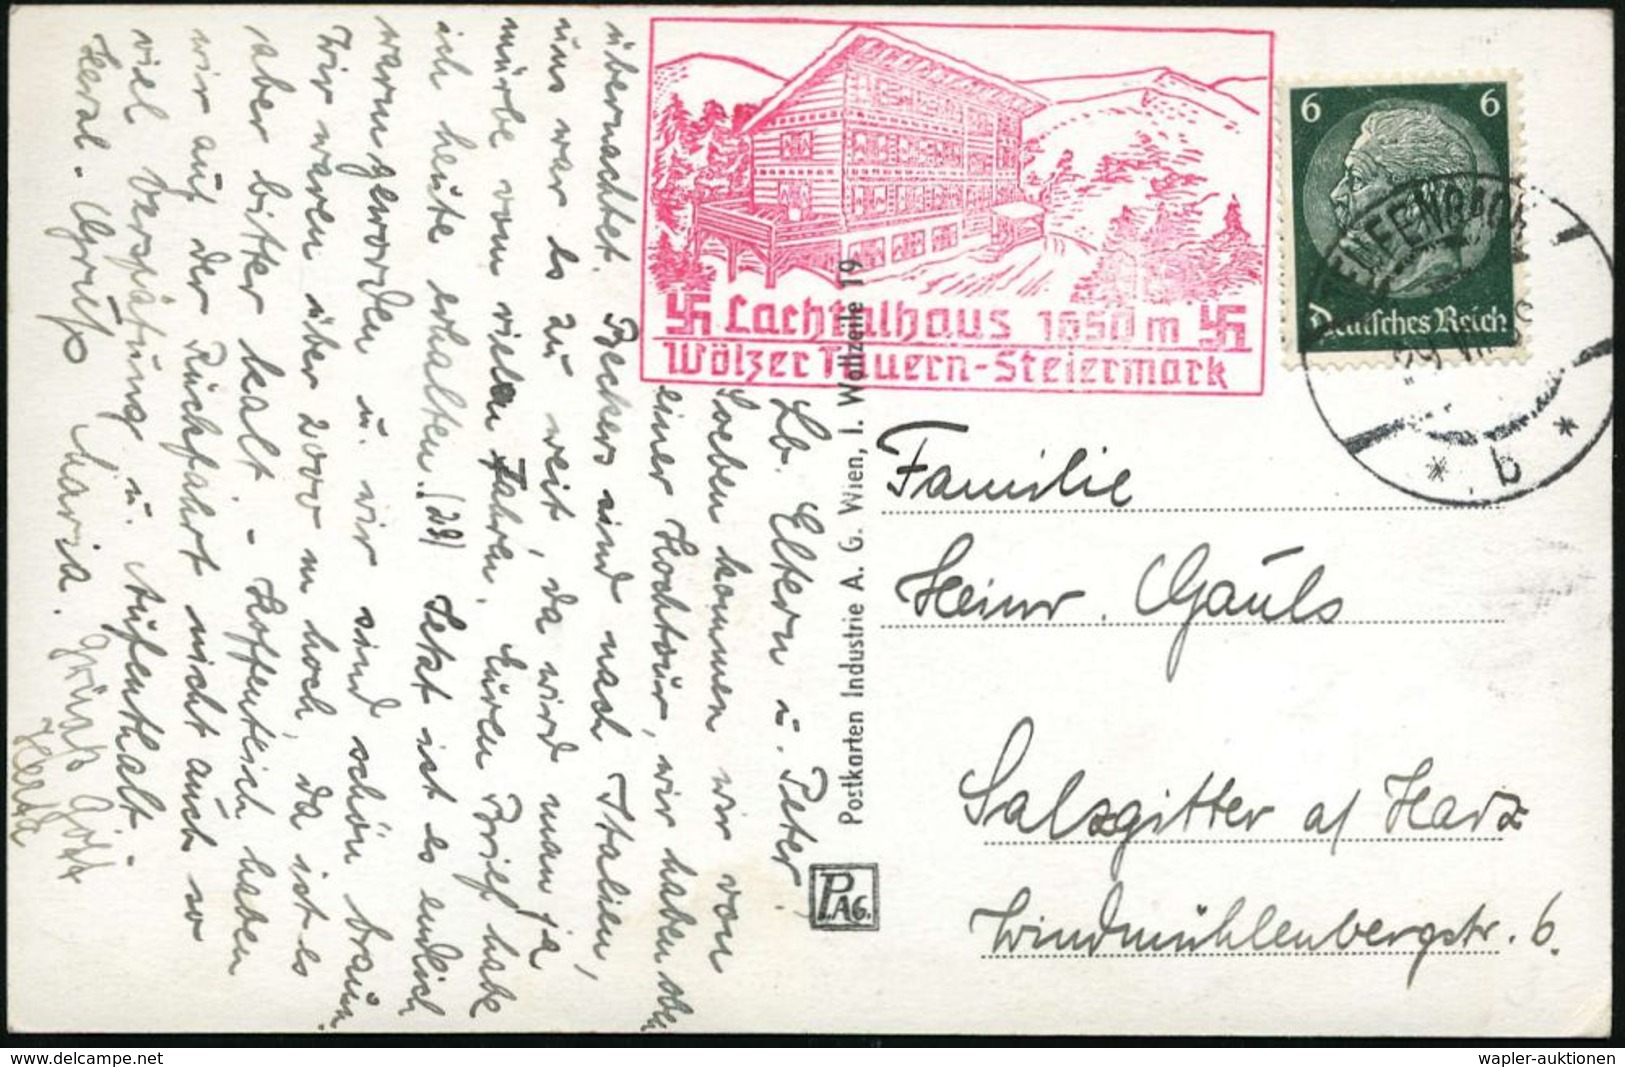 Lb. Eltern u. Peter!
Soeben kommen wir von
einer Hochtour, wir haben oben
übernachtet. Beckers sind nach Italien,
uns war es zu weit, da wird man ja
mürbe vom vielen Fahren. Euren Brief habe
ich heute erhalten. (28) Jetzt ist es endlich
warm geworden u. wir sind schön braun.
Wir waren über 2000 m hoch, da ist es
aber bitter kalt. - Hoffentlich haben
wir auf der Rückfahrt nicht auch so
viel Verspätung u. Aufenthalt. -
Herzl. Grüße Maria.
Grüß Gott
Herta
卐 Lachtalhaus 1650 m 卐
Wölzer Tauern-Steiermark
6 6
Deutsches Reich
b
Postkarten Industrie A. G. Wien, I. Wollzeile 19
PAG.
Familie
Heinr. Gauls
Salzgitter a/ Harz
Windmühlenbergstr. 6.
http://www.delcampe.net
wapler-auktionen